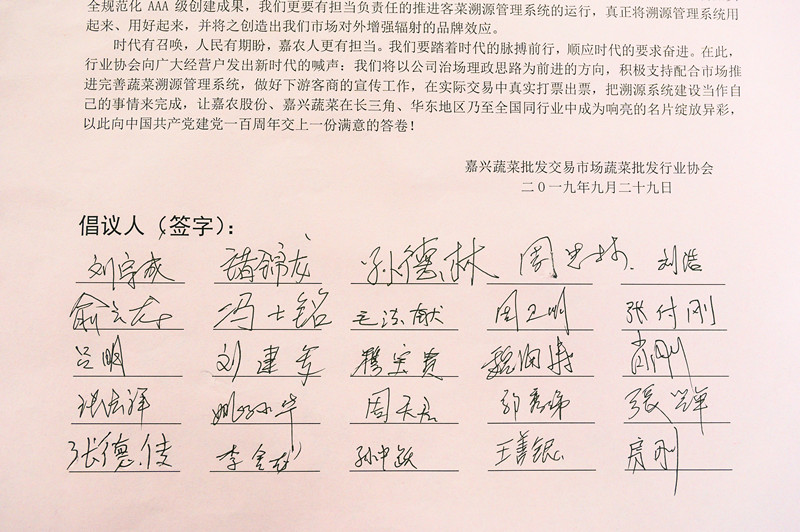 全规范化 AAA 级创建成果，我们更要有担当负责任的推进客菜溯源管理系统的运行，真正将溯源管理系统用
起来、用好起来，并将之创造出我们市场对外增强辐射的品牌效应。
时代有召唤，人民有期盼，嘉农人更有担当。我们要踏着时代的脉搏前行，顺应时代的要求奋进。在此，
行业协会向广大经营户发出新时代的喊声：我们将以公司治场理政思路为前进的方向，积极支持配合市场推
进完善蔬菜溯源管理系统，做好下游客商的宣传工作，在实际交易中真实打票出票，把溯源系统建设当作自
己的事情来完成，让嘉农股份、嘉兴蔬菜在长三角、华东地区乃至全国同行业中成为响亮的名片绽放异彩，
以此向中国共产党建党一百周年交上一份满意的答卷！
嘉兴蔬菜批发交易市场蔬菜批发行业协会
二〇一九年九月二十九日
倡议人（签字）：
刘宇成 孙德林 刘浩
冯士铭 周卫明 张付刚
吕明 刘建军 肖刚
姚小华
张德传 孙中跃 王善银 房刚